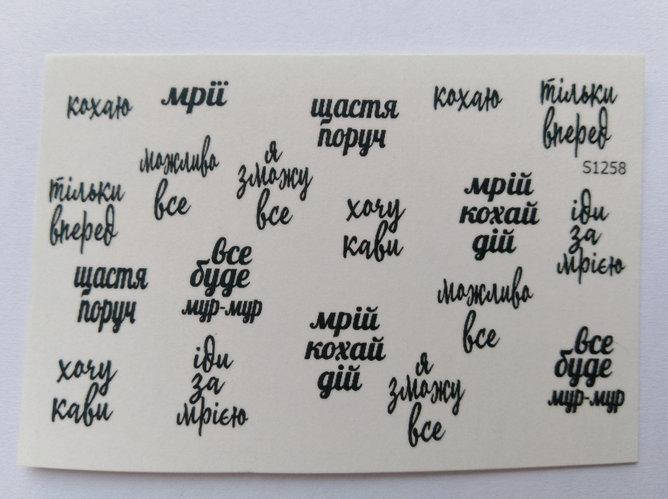 кохаю
мрії
щастя
поруч
кохаю
тільки
вперед
S1258
можливо
все
я
зможу
все
тільки
вперед
хочу
кави
мрій
кохай
дій
іди
за
мрією
щастя
поруч
все
буде
мур-мур
можливо
все
мрій
кохай
дій
хочу
кави
іди
за
мрією
я
зможу
все
все
буде
мур-мур